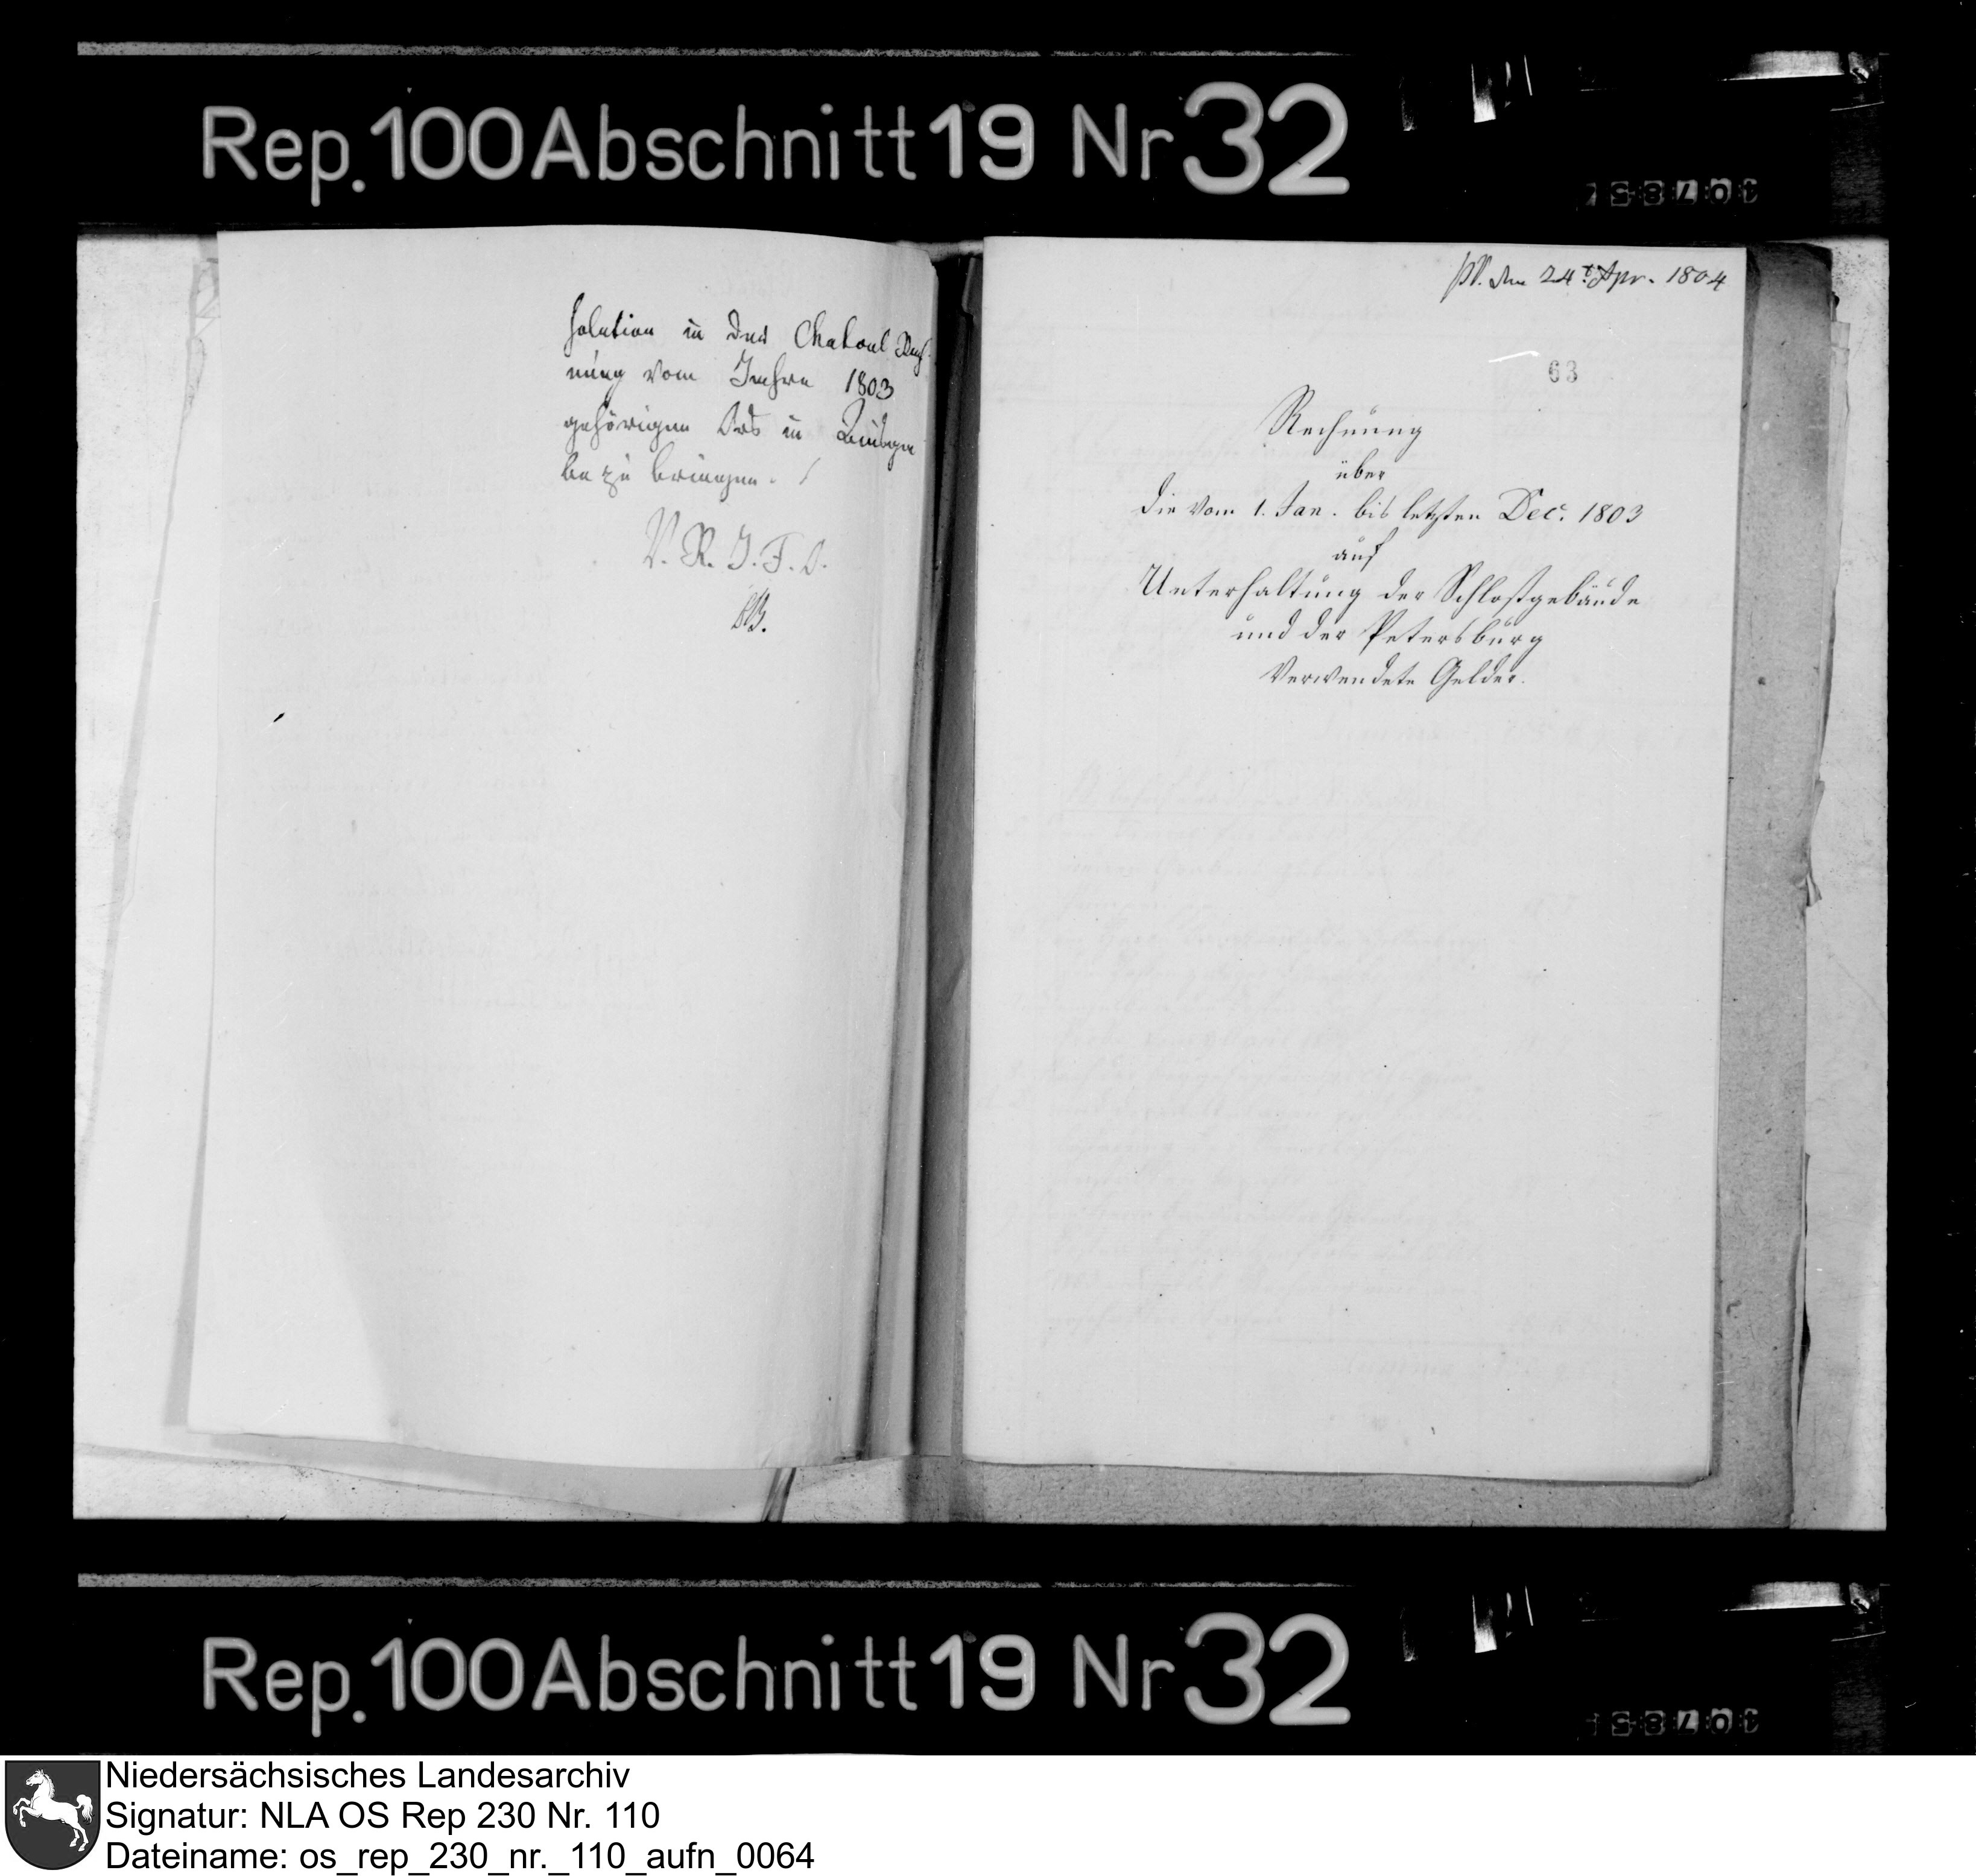 Rep. 100 Abschnitt 19 Nr 32
solution in der Chatoul Rech-
nung vom Jahre 1803
gehörigen Orts in Ausga
be zu bringen.
V. R. J. F. O.
den 24t Apr. 1804
63
Rechnung
über
die vom 1. Jan. bis letzten Dec. 1803
auf
Unterhaltung der Schloßgebäude
und der Petersburg
Verwendete Gelder.
Rep. 100 Abschnitt 19 Nr 32
Niedersächsisches Landesarchiv
Signatur: NLA OS Rep 230 Nr. 110
Dateiname: os_rep_230_nr._110_aufn_0064